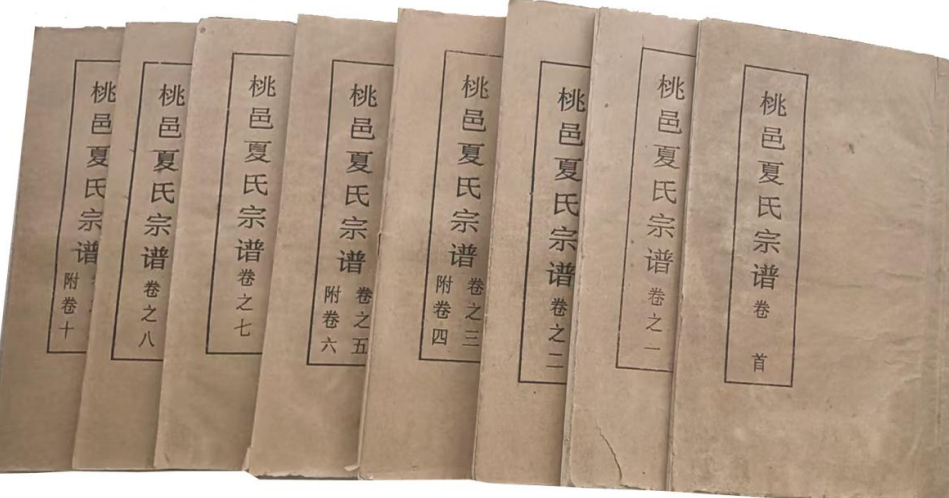 桃邑夏氏宗谱卷 首
桃邑夏氏宗谱卷之一
桃邑夏氏宗谱卷之二
桃邑夏氏宗谱卷之三
附卷四
桃邑夏氏宗谱卷之五
附卷六
桃邑夏氏宗谱卷之七
桃邑夏氏宗谱卷之八
桃邑夏氏宗谱
附卷十